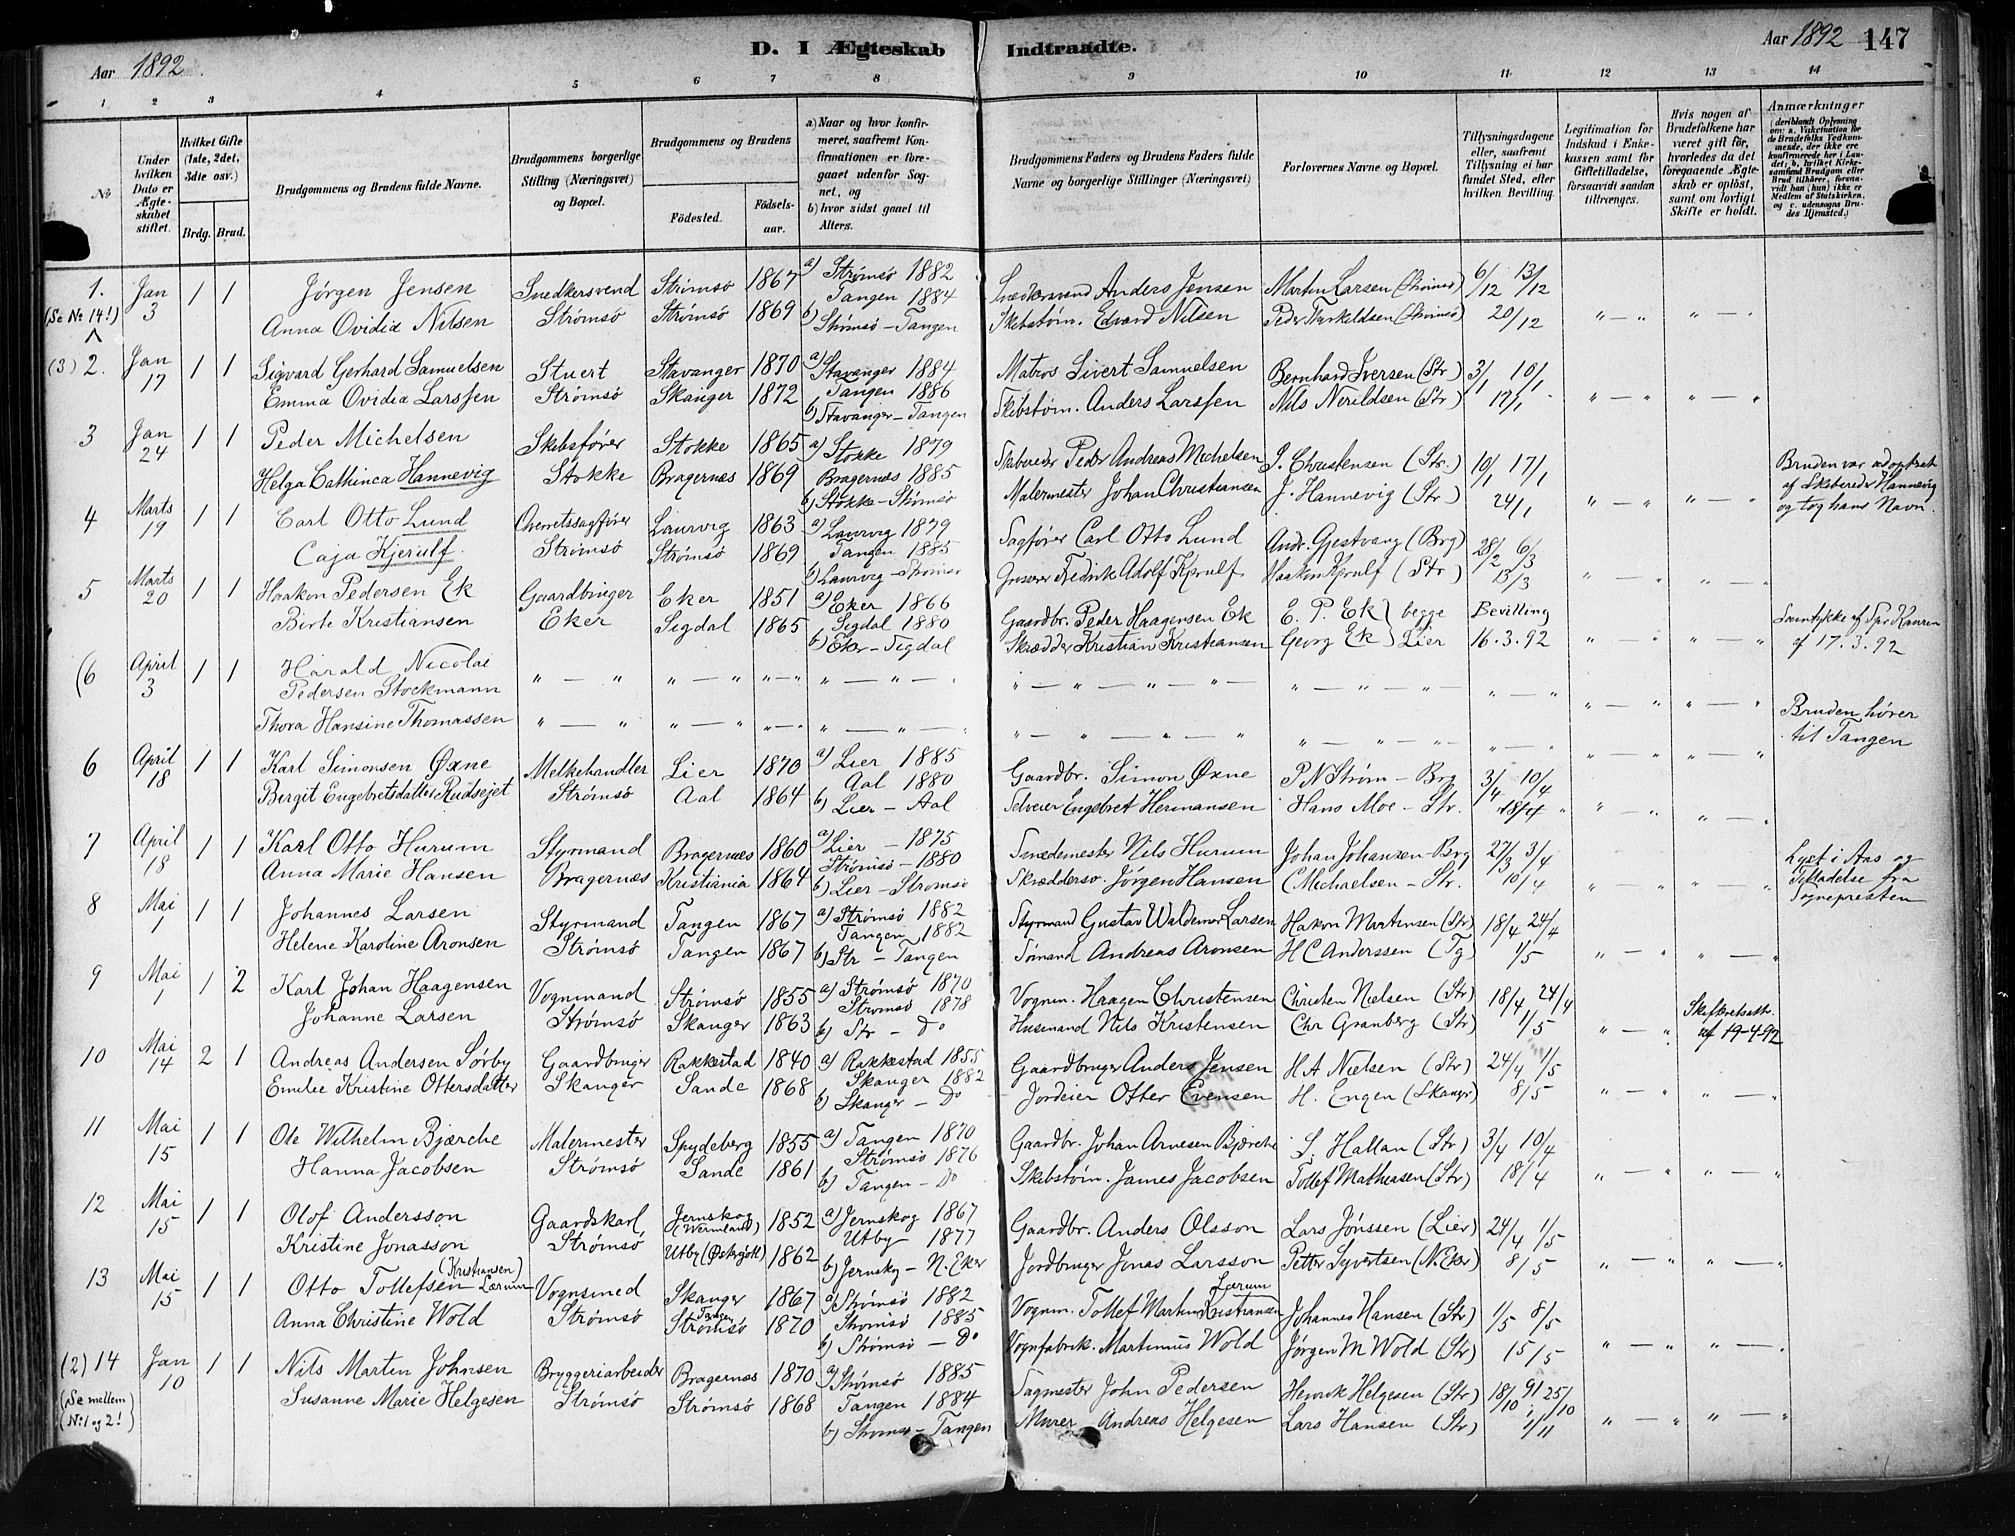 Aar 1892.
D. I Ægteskab Indtraadte.
Aar 1892 147
1 2 3 4 5 6 7 8 9 10 11 12 13 14
No
Under hvilken Dato er Ægteskabet stiftet.
Hvilket Gifte (1ste, 2det, 3die osv.)
Brdg. Brud.
Brudgommens og Brudens fulde Navne.
Brudgommens borgerlige Stilling (Næringsvei) og Bopæl.
Brudgommens og Brudens
Fødested. Fødselsaar.
a) Naar og hvor konfirmeret, saafremt Konfirmationen er foregaaet udenfor Sognet, og
b) hvor sidst gaaet til Alters.
Brudgommens Faders og Brudens Faders fulde Navne og borgerlige Stillinger (Næringsvei)
Forlovernes Navne og Bopæl.
Tillysningsdagene eller, saafremt Tillysning ei har fundet Sted, efter hvilken Bevilling.
Legitimation for Indskud i Enkekassen samt for Giftetilladelse, forsaavidt saadan tiltrænges.
Hvis nogen af Brudefolkene har været gift før, hvorledes da det foregaaende Ægteskab er opløst, samt om lovligt Skifte er holdt.
Anmærkninger (deriblandt Oplysning om: a. Vakcination for de Brudefolks Vedkommende, der ikke ere konfirmerede her i Landet; b. hvilket Kirkesamfund Brudgom eller Brud tilhører, forsaavidt han (hun) ikke er Medlem af Statskirken, og c. udensogns Brudes Hjemsted.)
1. Jan 1 1 Jørgen Jensen Snedkersvend Strømsø 1867 a) Strømsø 1882 Snedkersvend Anders Jensen Martin Larsen (Strømsø) 6/12 13/12
(Se No 14!) 3 Anna Ovidia Nilsen Strømsø Strømsø 1869 Tangen 1884 Skibstøm. Edvard Nilsen Peder Thorkeldsen (Strømsø) 20/12 " — " " — "
b) Strømsø – Tangen
(3) 2. Jan 1 1 Sigvard Gerhard Samuelsen Stuert Stavanger 1870 a) Stavanger 1884 Matros Sivert Samuelsen Bernhard Iversen (Str) 3/1 10/1
17 Emma Ovidia Larssen Strømsø Skanger 1872 Tangen 1886 Skibstøm. Anders Larssen Nils Nerildsen (Str) 17/1 " — " " — "
b) Stavanger – Tangen
3 Jan 1 1 Peder Michelsen Skibsfører Stokke 1865 a) Stokke 1879 Skibsreder Peder Andreas Michelsen S. Christensen (Str.) 10/1 17/1 Bruden var adopteret
24 Helga Cathinca Hannevig Stokke Bragernæs 1869 Bragernæs 1885 Malermester Johan Christiansen J. Hannevig (Str) 24/1 " — " " — " af Skibsreder Hannevig
b) Stokke – Strømsø og tog hans Navn.
4 Marts 1 1 Carl Otto Lund Overretssagfører Laurvig 1863 a) Laurvig 1879 Sagfører Carl Otto Lund Andr. Gjestvang (Brg) 28/2 6/3
19 Caja Kjerulf. Strømsø Strømsø 1869 Tangen 1885 Grosserer Fredrik Adolf Kjerulf Haakon Kjerulf (Str) 13/3 " — " " — "
b) Laurvig – Strømsø
5 Marts 1 1 Haakon Pedersen Ek Gaardbruger Eker 1851 a) Eker 1866 Gaardbr. Peder Haagensen Ek E. P. Ek } begge Bevilling Samtykke af Spr Kauren
20 Birte Kristiansen Eker Sigdal 1865 Sigdal 1880 Skrædder Kristian Kristiansen Georg Ek } Lier 16.3.92 " — " " — " af 17.3.92
b) Eker – Sigdal
(6 April 1 1 Harald Nicolai
3 Pedersen Stockmann " — " " — " " — " " — " — " " — " — " — " " — " — " " — " " — " " — " Bruden hører
Thora Hansine Thomassen " — " " — " " — " " — " — " " — " — " — " " — " — " " — " " — " " — " til Tangen
6 April 1 1 Karl Simonsen Øxne Melkehandler Lier 1870 a) Lier 1885 Gaardbr. Simon Øxne P N Strøm – Brg 3/4 10/4
18 Birgit Engebretsdatter Rudsejet Strømsø Aal 1864 Aal 1880 Selveier Engebret Hermansen Hans Moe – Str. 18/4 " — " " — "
b) Lier – Aal
7 April 1 1 Karl Otto Hurum Styrmand Bragernæs 1860 a) Lier – 1875 Smedemester Nils Hurum Johan Johansen – Brg 27/3 3/4 Lyst i Aas og
18 Anna Marie Hansen Bragernæs Kristiania 1864 Strømsø – 1880 Skræddersv. Jørgen Hansen C Michaelsen – Str. 10/4 " — " " — " Tilladelse fra
b) Lier – Strømsø Sognepresten
8 Mai 1 1 Johannes Larsen Styrmand Tangen 1867 a) Strømsø 1882 Styrmand Gustav Waldemar Larsen Hakon Mortensen (Str) 18/4 24/4
1 Helene Karoline Aronsen Strømsø Tangen 1867 Tangen 1882 Sømand Andreas Aronsen H C Anderssen (Tg) 1/5 " — " " — "
b) Str – Tangen
9 Mai 1 2 Karl Johan Haagensen Vognmand Strømsø 1855 a) Strømsø 1870 Vognm. Haagen Christensen Christen Nielsen (Str) 18/4 24/4 Skifteretsattr.
1 Johanne Larsen Strømsø Skanger 1863 Strømsø 1878 Husmand Nils Kristensen Chr Granberg (Str) 1/5 " — " af 19-4-92
b) Str – Do
10 Mai 2 1 Andreas Andersen Sørby Gaardbruger Rakkestad 1840 a) Rakkestad 1855 Gaardbruger Anders Jensen H A Nielsen (Str) 24/4 1/5
14 Emilie Kristine Ottersdatter Skanger Sande 1868 Skanger 1882 Jordeier Otter Evensen H. Engen (Skangr) 8/5 " — " " — "
b) Skanger – Do
11 Mai 1 1 Ole Wilhelm Bjærche Malermester Spydeberg 1855 a) Tangen 1870 Gaardbr. Johan Arnesen Bjærche S. Hallan (Str) 3/4 10/4
15 Hanna Jacobsen Strømsø Sande 1861 Strømsø 1876 Skibstøm. James Jacobsen Tollef Mathiasen (Str) 18/4 " — " " — "
b) Tangen – Do
12 Mai 1 1 Olof Andersson Gaardskarl Jernskog (Wermland) 1852 a) Jernskog 1867 Gaardbr. Anders Olsson Lars Jønssen (Lier) 24/4 1/5
15 Kristine Jonasson Strømsø Utby (Østgøtl) 1862 Utby 1877 Jordbruger Jonas Larsson Petter Syvertsen (N. Eker) 8/5 " — " " — "
b) Jernskg – N. Eker
13 Mai 1 1 Otto Tollefsen (Kristiansen) Lærum Vognsmed Skanger 1867 a) Strømsø 1882 Vognm. Tollef Martin Kristiansen Lærum Johannes Hansen (Str) 1/5 8/5
15 Anna Christine Wold Strømsø Strømsø Tangen 1870 Strømsø 1885 Vognfabrik. Martinius Wold Jørgen M Wold (Str) 15/5 " — " " — "
b) Strømsø – Do
(2) 14 Jan 1 1 Nils Martin Johnsen Bryggeriarbeider Bragernæs 1870 a) Strømsø 1885 Sagmester John Pedersen Henrik Helgesen (Str) 18/10 91 25/10
(Se mellem No 1 og 2!) 10 Susanne Marie Helgesen Strømsø Strømsø 1868 Tangen 1884 Murer Andreas Helgesen Lars Hansen (Str) 1/11 " — " " — "
b) Strømsø – Tangen